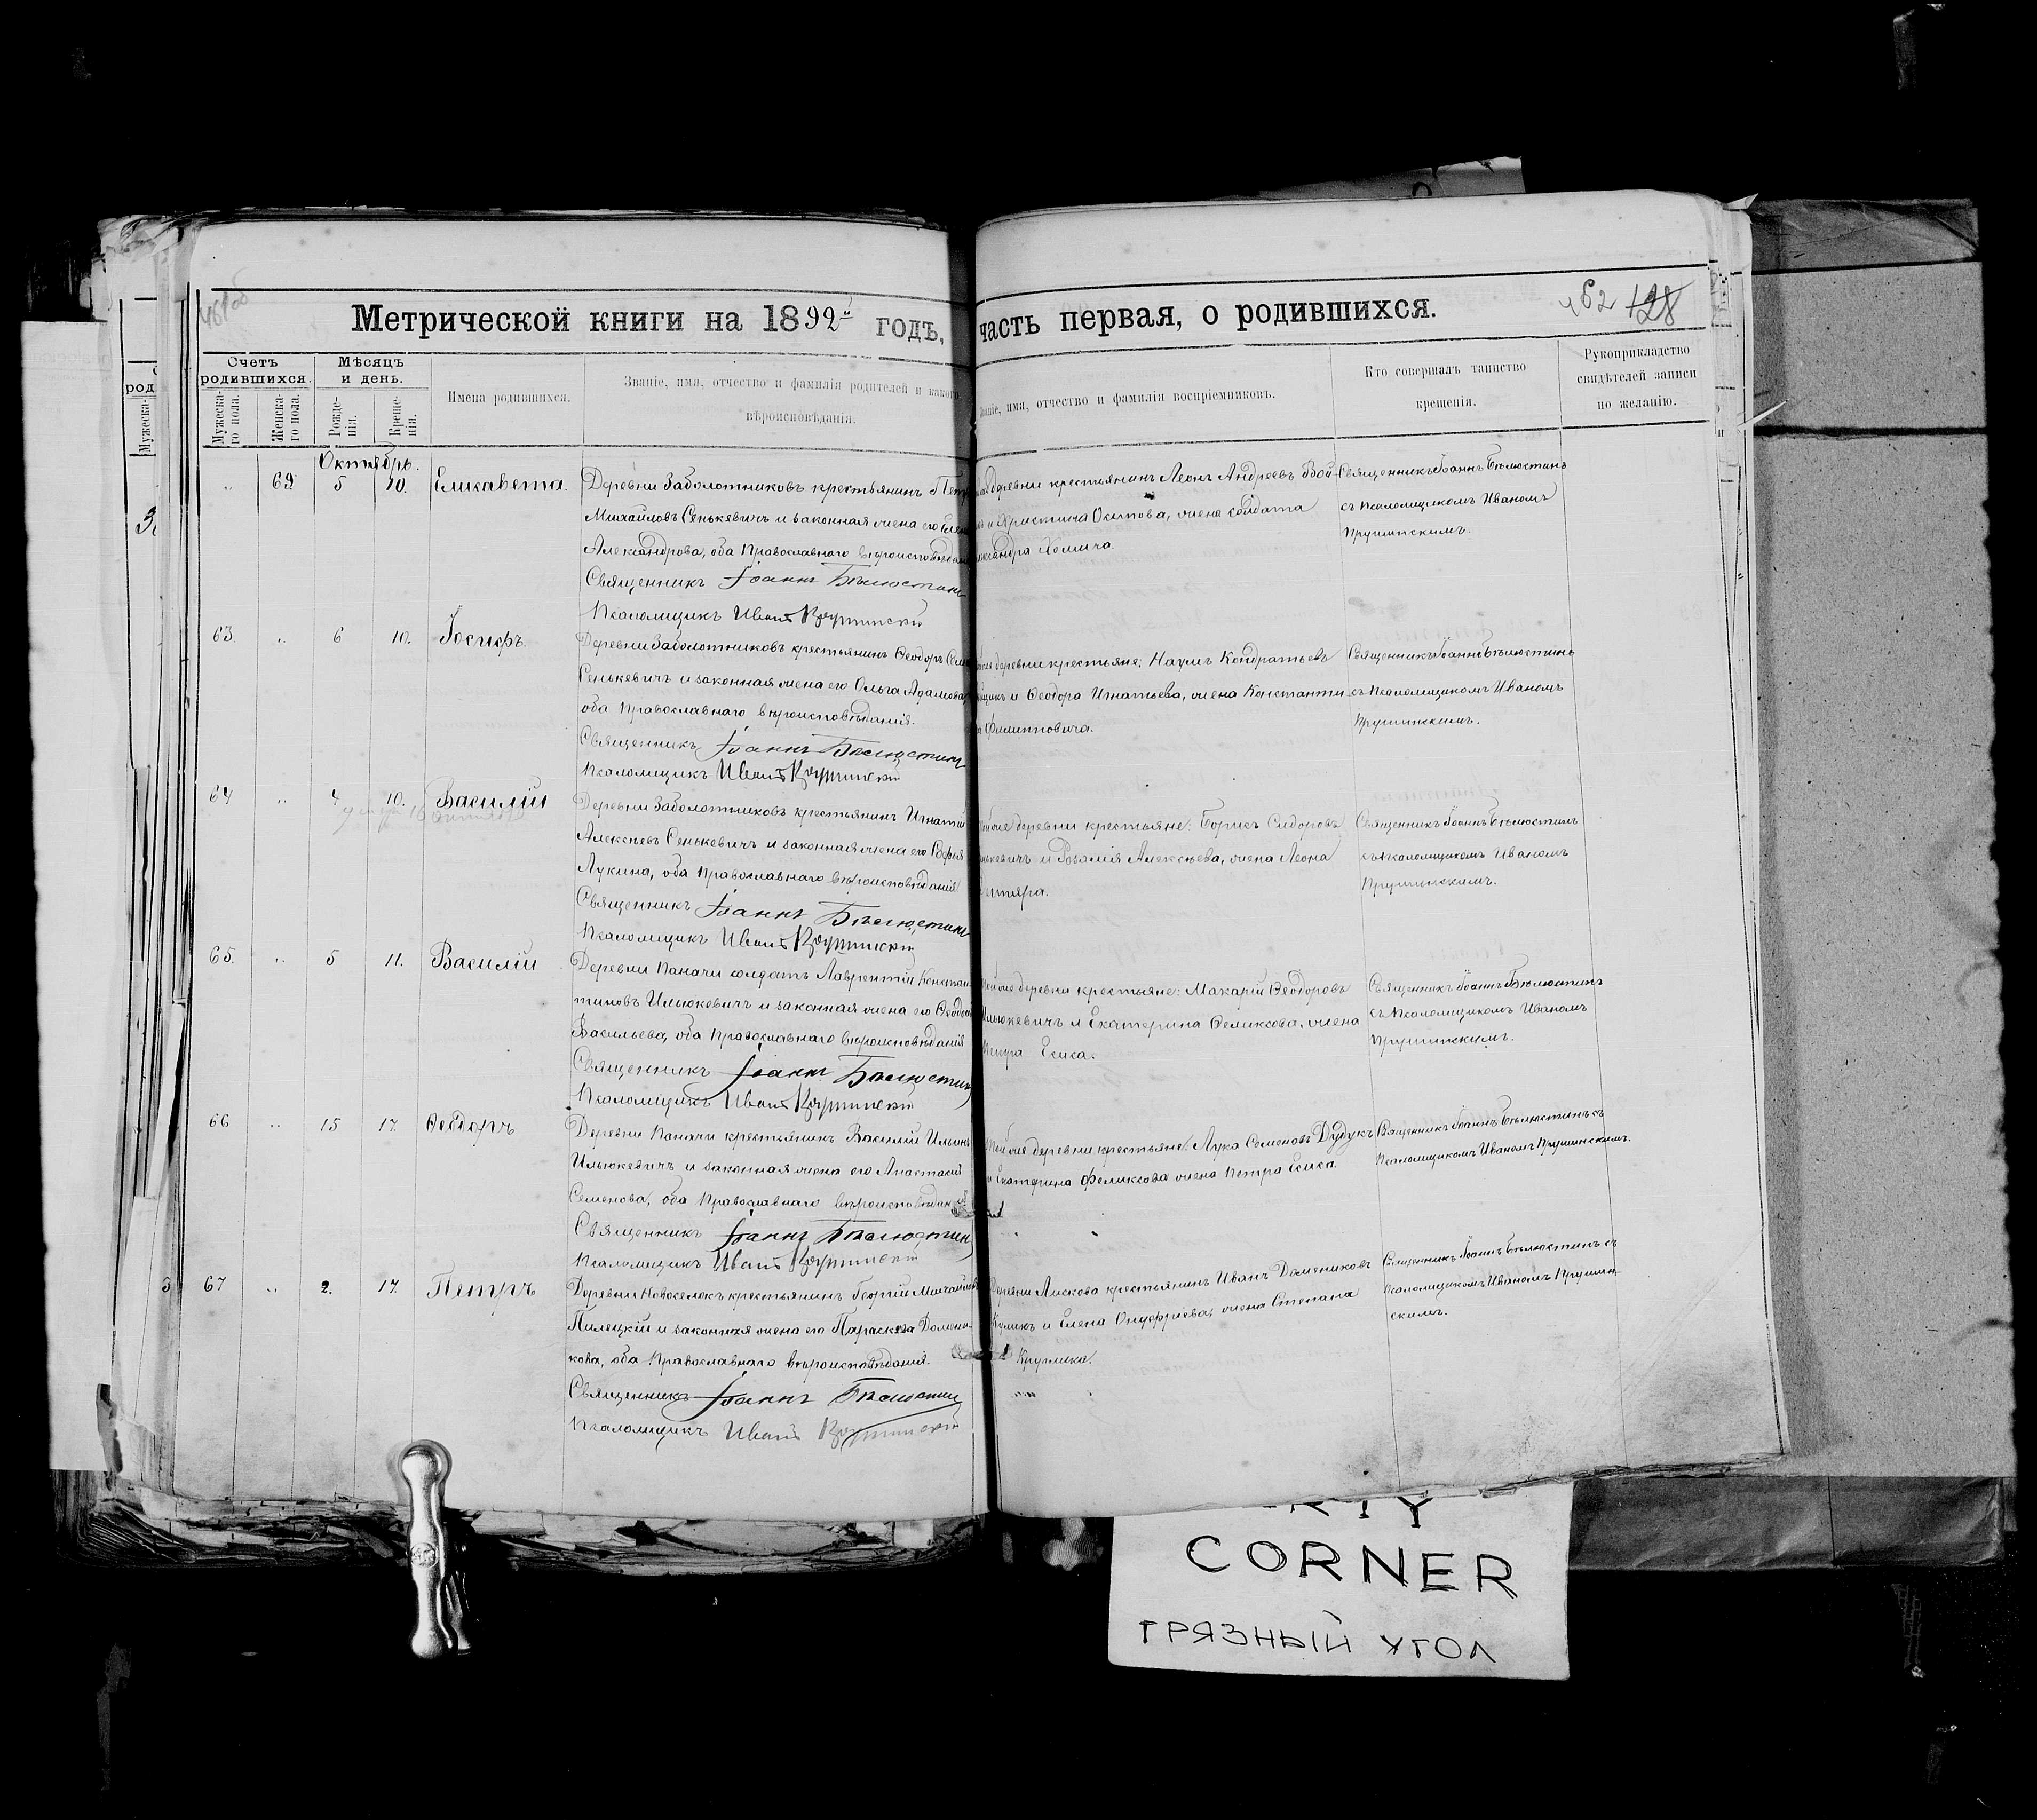 Метрической книги на 1892й годъ, часть первая, о родившихся.
462 128
Счетъ родившихся.
Мужеска-го пола.
Женска-го пола.
Мѣсяцъ и день.
Рожде-нія.
Креще-нія.
Имена родившихся.
Званіе, имя, отчество и фамилія родителей и какого
вѣроисповѣданія.
Званіе, имя, отчество и фамилія воспріемниковъ.
Кто совершалъ таинство
крещенія.
Рукоприкладство
свидѣтелей записи
по желанію.
Октябрь.
„ 69 5 10. Елисавета.
Деревни Заболотниковъ крестьянинъ Петръ
Михайловъ Сенькевичъ и законная жена его
Александрова, оба Православнаго вѣроисповѣданія
Священникъ Іоаннъ Бѣлюстинъ
Псаломщикъ Иванъ
деревни крестьянинъ Леонъ Андреевъ
и Христина Осипова, жена солдата
Хомича.
Священникъ Іоаннъ Бѣлюстинъ
съ Псаломщикомъ Иваномъ
Прушинскимъ.
63. „ 6 10. Іосифъ.
Деревни Заболотниковъ крестьянинъ Ѳеодоръ
Сенькевичъ и законная жена его Ольга Адамова
оба Православнаго вѣроисповѣданія.
Священникъ Іоаннъ Бѣлюстинъ
Псаломщикъ Иванъ
деревни крестьяне: Наумъ Кондратьевъ
и Ѳеодора Игнатьева, жена Константи-
Филипповича.
Священникъ Іоаннъ Бѣлюстинъ
съ Псаломщикомъ Иваномъ
Прушинскимъ.
64 „ 4 10. Василій
Деревни Заболотниковъ крестьянинъ Игнатій
Алексѣевъ Сенькевичъ и законная жена его Софія
Лукина, оба Православнаго вѣроисповѣданія
Священникъ Іоаннъ Бѣлюстинъ
Псаломщикъ Иванъ
Той же деревни крестьяне: Борисъ Сидоровъ
и Розалія Алексѣева, жена Леона
Священникъ Іоаннъ Бѣлюстинъ
съ Псаломщикомъ Иваномъ
Прушинскимъ.
65. „ 5 11. Василій
Деревни Паначи солдатъ Лаврентій Констан-
тиновъ Ильюкевичъ и законная жена его
Васильева, оба Православнаго вѣроисповѣданія
Священникъ Іоаннъ Бѣлюстинъ
Псаломщикъ Иванъ
Той же деревни крестьяне: Макарій Ѳеодоровъ
Ильюкевичъ и Екатерина Феликсова, жена
Петра Есиса.
Священникъ Іоаннъ Бѣлюстинъ
съ Псаломщикомъ Иваномъ
Прушинскимъ.
66 „ 15 17. Ѳеодоръ
Деревни Паначи крестьянинъ Василій Ильинъ
Ильюкевичъ и законная жена его Анастасія
Семенова, оба Православнаго вѣроисповѣданія
Священникъ Іоаннъ Бѣлюстинъ
Псаломщикъ Иванъ
Той же деревни крестьяне: Лука Семеновъ Дудукъ
и Екатерина Феликсова жена Петра Есиса.
Священникъ Іоаннъ Бѣлюстинъ съ
Псаломщикомъ Иваномъ Прушинскимъ.
67 „ 2. 17. Петръ
Деревни Новоселокъ крестьянинъ Георгій Михайловъ
Пилецкій и законная жена его Параскева Домени-
кова, оба Православнаго вѣроисповѣданія.
Священникъ Іоаннъ Бѣлюстинъ
Псаломщикъ Иванъ
Деревни Лискова крестьянинъ Иванъ Домениковъ
Куликъ и Елена Онуфріева, жена Степана
Кругліка.
Священникъ Іоаннъ Бѣлюстинъ съ
Псаломщикомъ Иваномъ Прушин-
скимъ.
CORNER
ГРЯЗНЫЙ УГОЛ